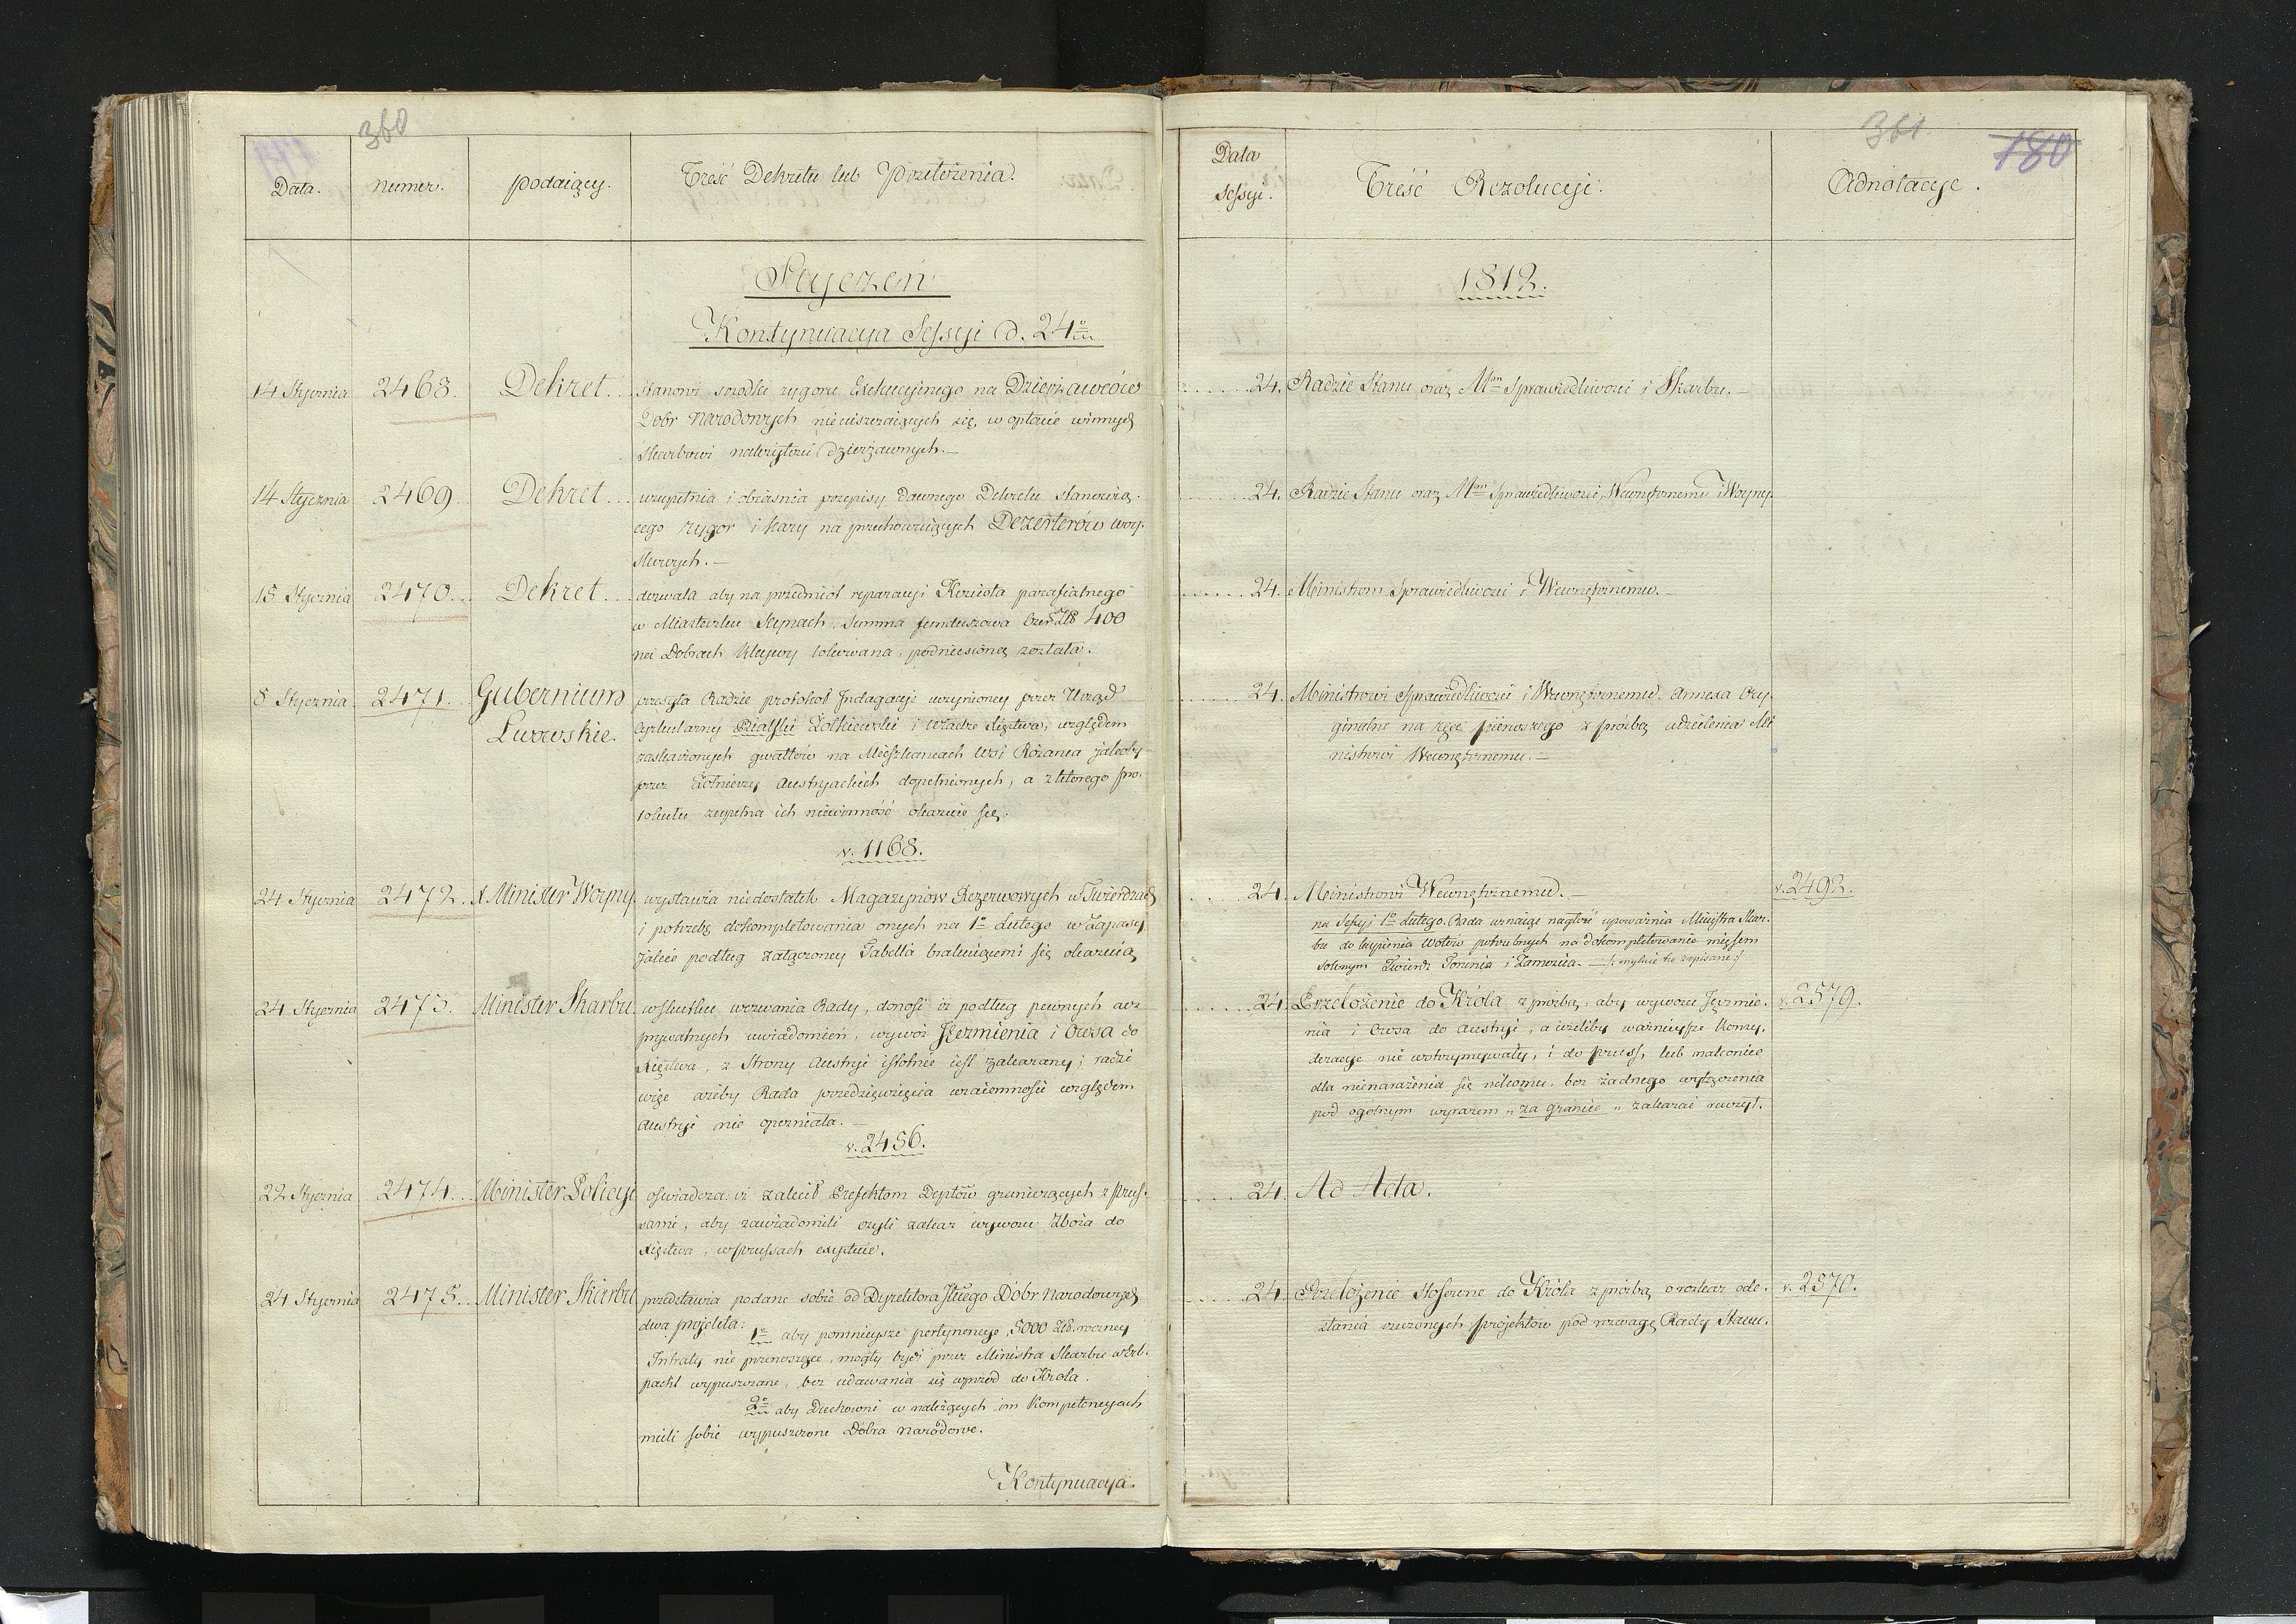 360
Data.
numer.
podaiący.
Treść Dekretu lub Przełożenia.
Styczeń
Kontynuacya Sessyi d. 24º
14 Stycznia 2468. Dekret. Stanowi środki rygoru Exekucyinego na Dzierżawców
Dobr Narodowych nieuiszczaiących się, w opłacie winnych
Skarbowi należytości dzierżawnych.—
14 Stycznia 2469 Dekret uzupełnia i obiaśnia przepisy dawnego Dekretu stanowią-
cego rygor i kary na przechowuiących Dezerterów woy-
skowych.—
15 Stycznia 2470. Dekret. dozwala aby na przedmiot reparacyi Kościoła parafialnego
w Miasteczku summa funduszowa Czer Złł 400
na Dobrach lokowana, podniesioną została.
8 Stycznia 2471. Gubernium przesyła Radzie protokoł Indagacyi uczynioney przez Urząd
Lwowskie. Cyrkularny Żołkiewski i Władze Xięstwa, względem
zaskarżonych gwałtów na Mieszkancach Wsi Rożanca jakoby
przez Żołnierzy Austryackich dopełnionych, a z ktorego pro-
tokułu zupełna ich niewinność okazuie się.
v. 1168.
24 Stycznia 2472. Minister Woyny. wystawia niedostatek Magazynów Rezerwowych w Twierdzach
i potrzebę dokompletowania onych na 1º Lutego w Zapasy
jakie podług załączoney Tabelli brakuiącemi się okazuią
24 Stycznia 2473. Minister Skarbu. w skutku wezwania Rady, donosi iż podług pewnych acz
prywatnych uwiadomień, wywoz Jęczmienia i Owsa do
Xięstwa, z Strony Austryi istotnie iest zakazany; radzi
więc ażeby Rada przedsięwzięcia wzaiemności względem
Austryi nie opozniała.—
v. 2456.
22 Stycznia 2474. Minister Policyi oświadcza iż zalecił Prefektom Deptów graniczących z Prus-
sami, aby zawiadomili czyli zakaz wywozu Zboża do
Xięstwa, w Prussach exystuie.
24 Stycznia 2475. Minister Skarbu przedstawia podane sobie od Dyrektora Jlnego Dobr Narodowych
dwa projekta: 1º aby pomnieysze pertynencye, 5000 Złł. roczney
Intraty nie przenoszące, mogły bydź przez Ministra Skarbu w Erb-
pacht wypuszczane, bez udawania się wprzód do Króla.
2º aby Duchowni w należących im Kompetencyach
mieli sobie wypuszczone Dobra narodowe.
Kontynuacya.
361
180
Data
Sessyi.
Treść Rezolucyi.
Adnotacye.
1812.
24. Radzie Stanu oraz Mom Sprawiedliwości i Skarbu.—
24. Radzie Stanu oraz Mom Sprawiedliwości, Wewnętrznemu i Woyny
24. Ministrom Sprawiedliwości i Wewnętrznemu.—
24. Ministrowi Sprawiedliwości i Wewnętrznemu. Annexa Ory-
ginalne na ręce pierwszego z prośbą udzielenia Mi
nistrowi Wewnętrznemu.—
24. Ministrowi Wewnętrznemu.— v. 2492.
na Sessyi 1º Lutego. Rada uznaiąc nagłość upoważnia Ministra Skar-
bu do kupienia Wołów potrzebnych na dokompletowanie mięsem
solonym Twierdz Torunia i Zamościa.— /: mylnie tu zapisane :/
24. Przełożenie do Króla z prośbą, aby wywozu Jęczmie- v. 2579.
nia i Owsa do Austryi, a ieżeliby ważnieysze konsy-
deracye nie wstrzymywały, i do Pruss, lub nakoniec
dla nienarażenia się nikomu, bez żadnego wyłączenia
pod ogolnym wyrazem „za granice„ zakazać raczył.
24. Ad Acta.
24. Przełożenie stosowne do Króla z prośbą o rozkaz ode- v. 2570.
słania rzeczonych projektów pod rozwagę Rady Stanu.